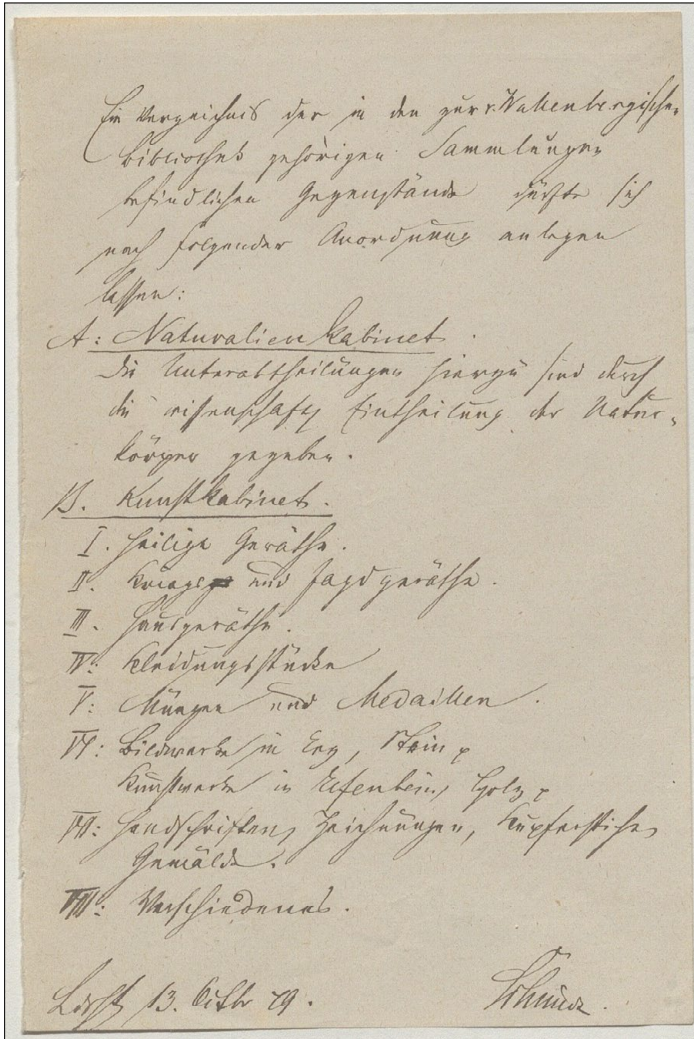 Ein Verzeichnis der in den zur v. Wallenbergischen
Bibliothek gehörigen Sammlungen
befindlichen Gegenstände dürfte sich
nach folgender Anordnung anlegen
lassen:
A: Naturalienkabinet.
Die Unterabtheilungen hierzu sind durch
die wissenschaftl Eintheilung der Natur-
körper gegeben.
B. Kunstkabinet.
I. Heilige Geräthe.
II. Kriegs und Jagdgeräthe.
III. Hausgeräthe.
IV: Kleidungsstücke
V: Münzen und Medaillen.
VI: Bildwerke in Erz, Stein
Kunstwerke in Elfenbein, Holz
VII: Handschriften, Zeichnungen, Kupferstiche,
Gemälde.
VIII: Verschiedenes.
13. Octbr 79.